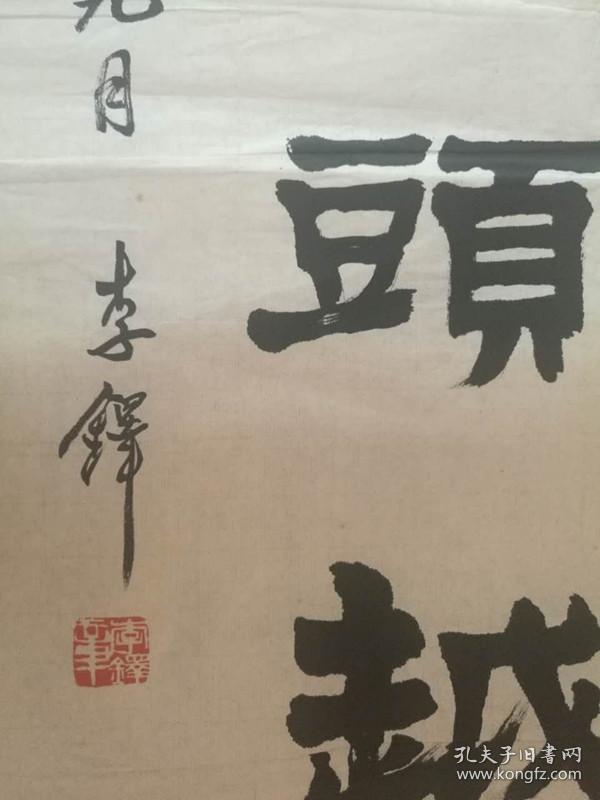 頭越
九月 李鐸
李鐸書
孔夫子旧書网
www.kongfz.com